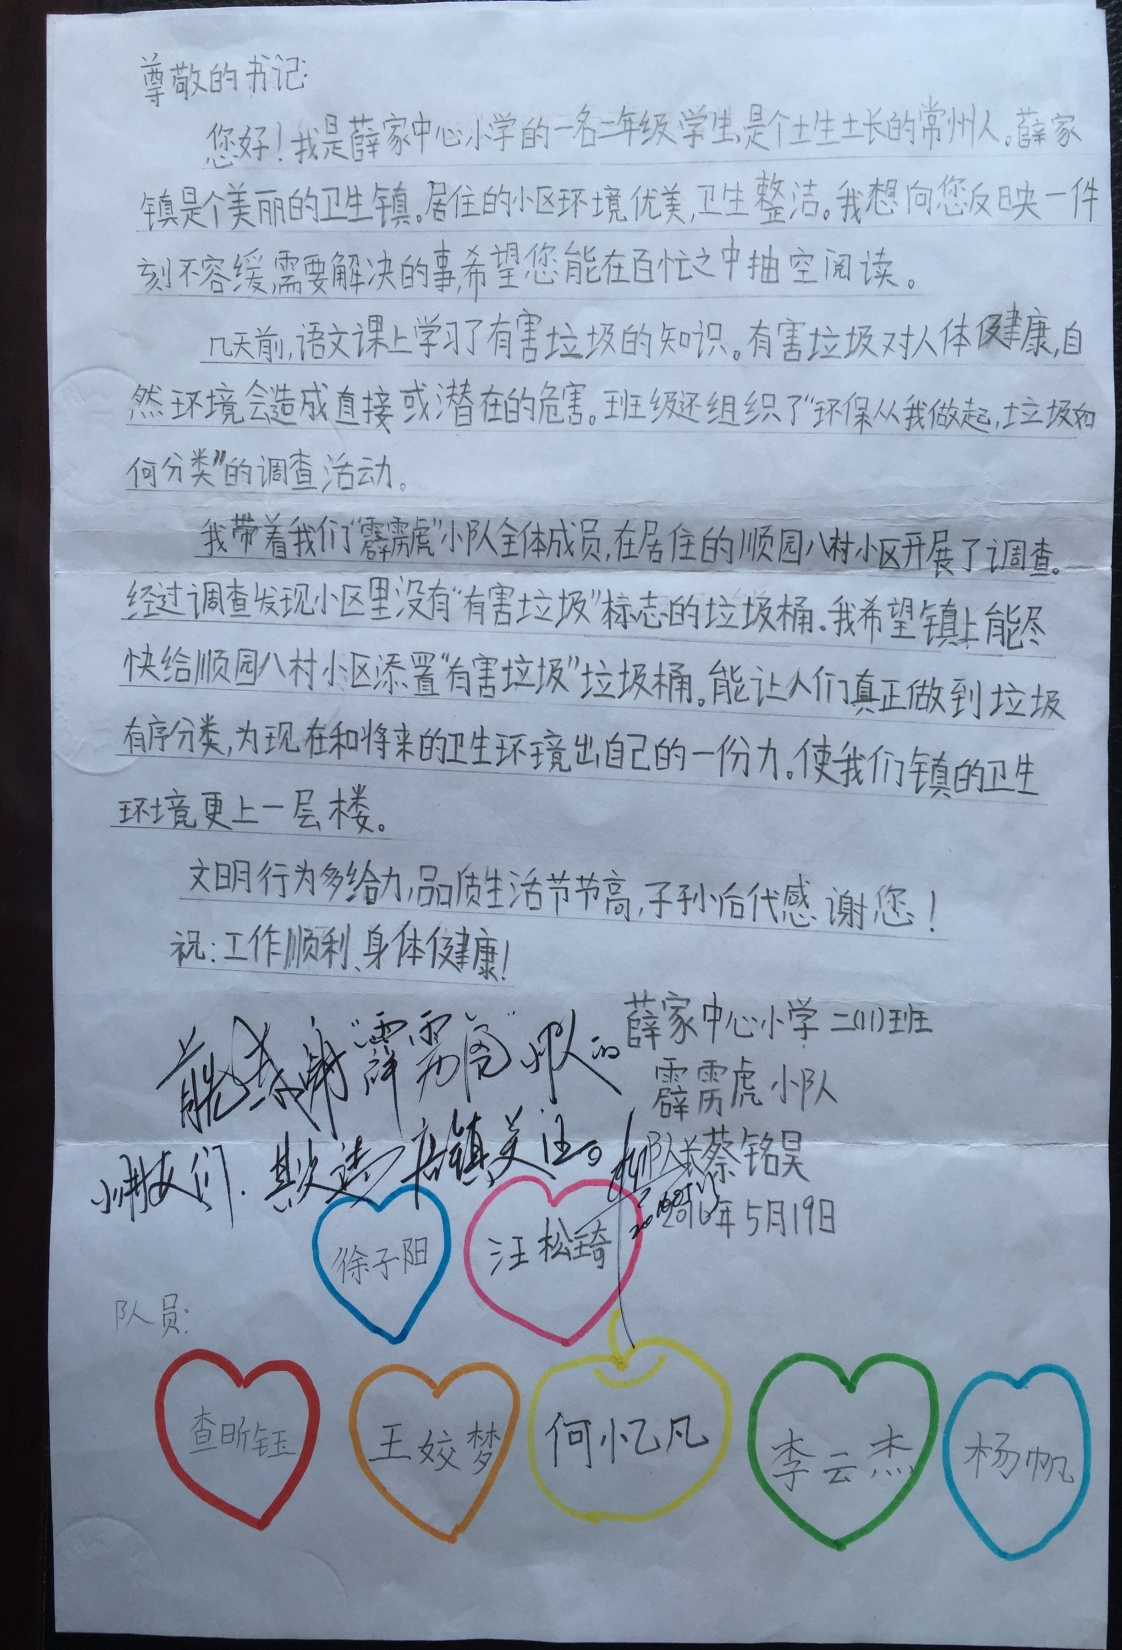 尊敬的书记:
您好！我是薛家中心小学的一名二年级学生,是个土生土长的常州人。薛家
镇是个美丽的卫生镇。居住的小区环境优美,卫生整洁。我想向您反映一件
刻不容缓,需要解决的事,希望您能在百忙之中抽空阅读。
几天前,语文课上学习了有害垃圾的知识。有害垃圾对人体健康,自
然环境会造成直接或潜在的危害。班级还组织了“环保从我做起,垃圾如
何分类”的调查活动。
我带着我们“霹雳虎”小队全体成员,在居住的顺园八村小区开展了调查。
经过调查发现小区里没有“有害垃圾”标志的垃圾桶。我希望镇上能尽
快给顺园八村小区添置“有害垃圾”垃圾桶。能让人们真正做到垃圾
有序分类,为现在和将来的卫生环境出自己的一份力。使我们镇的卫生
环境更上一层楼。
文明行为多给力,品质生活节节高,子孙后代感谢您！
祝:工作顺利、身体健康！
薛家中心小学二(11)班
霹雳虎小队
队长蔡铭昊
2016年5月19日
感谢“霹雳虎”小队的
小朋友们.
关注。
徐子阳
汪松琦
队员:
查昕钰
王姣梦
何忆凡
李云杰
杨帆